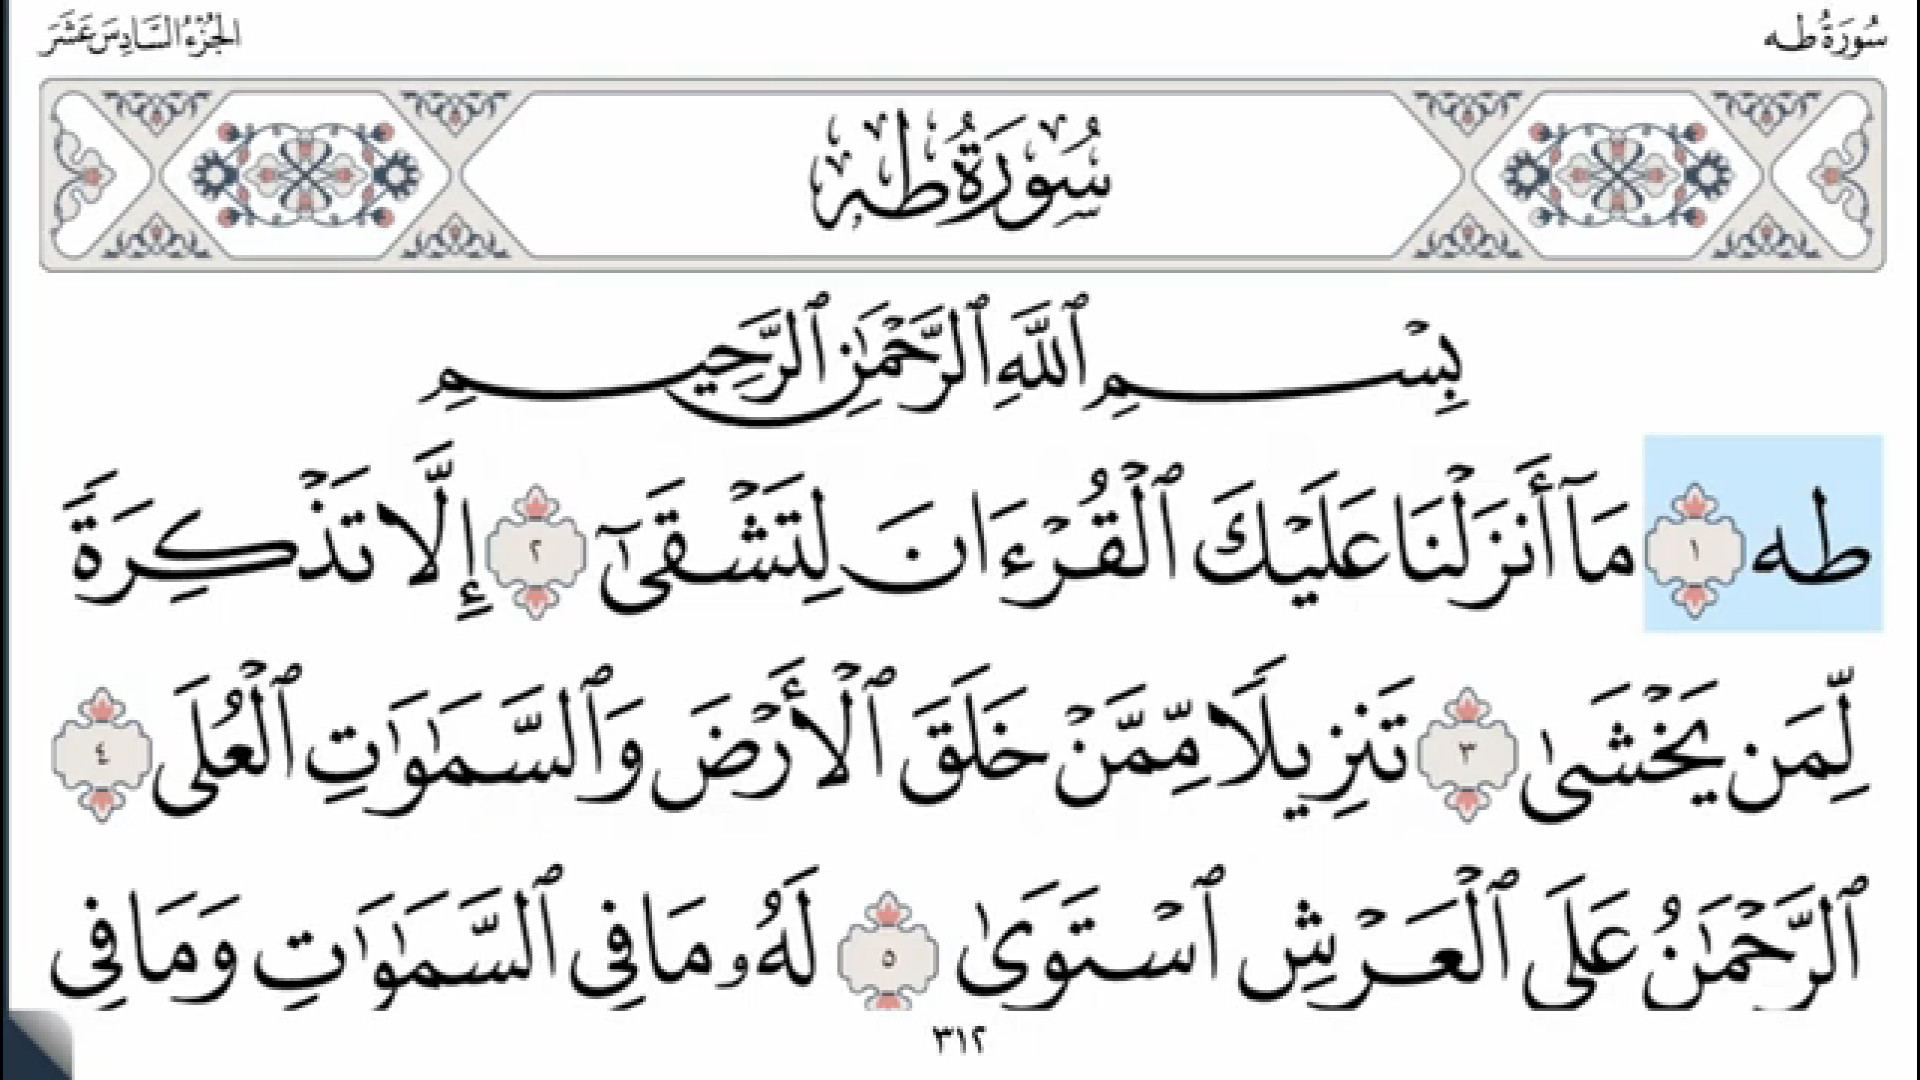 سُورَةُ طه
الجُزْءُ السَّادِسَ عَشَرَ
سُورَةُ طه
بِسْمِ ٱللَّهِ ٱلرَّحْمَٰنِ ٱلرَّحِيمِ
طه ١ مَآ أَنزَلْنَا عَلَيْكَ ٱلْقُرْءَانَ لِتَشْقَىٰٓ ٢ إِلَّا تَذْكِرَةً
لِّمَن يَخْشَىٰ ٣ تَنزِيلًا مِّمَّنْ خَلَقَ ٱلْأَرْضَ وَٱلسَّمَٰوَٰتِ ٱلْعُلَى ٤
ٱلرَّحْمَٰنُ عَلَى ٱلْعَرْشِ ٱسْتَوَىٰ ٥ لَهُۥ مَا فِى ٱلسَّمَٰوَٰتِ وَمَا فِى
٣١٢